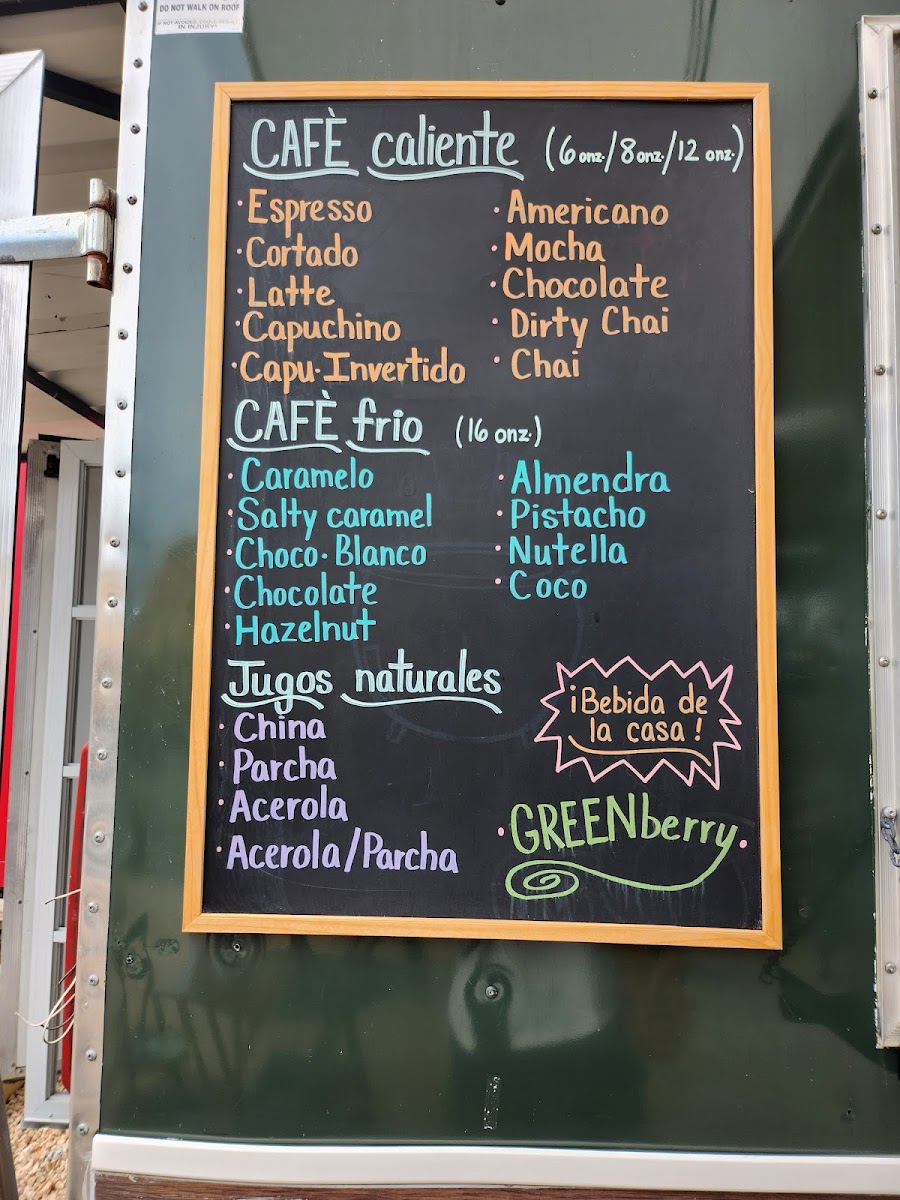 DO NOT WALK ON ROOF
IF NOT AVOIDED, COULD RESULT
IN INJURY!
CAFÈ caliente (6 onz./8 onz./12 onz.)
· Espresso
· Cortado
· Latte
· Capuchino
· Capu·Invertido
· Americano
· Mocha
· Chocolate
· Dirty Chai
· Chai
CAFÈ frio (16 onz.)
· Caramelo
· Salty caramel
· Choco·Blanco
· Chocolate
· Hazelnut
· Almendra
· Pistacho
· Nutella
· Coco
Jugos naturales
· China
· Parcha
· Acerola
· Acerola/Parcha
¡Bebida de
la casa!
· GREENberry ·